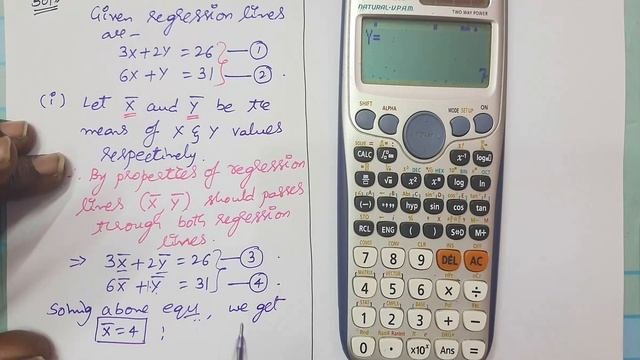 Soln
Given regression lines
are -
3x+2y = 26 —①
6x + y = 31 —②.
(i) Let X̄ and Ȳ be the
means of X & Y values
respectively.
∴ By properties of regression
lines (X̄ Ȳ) should passes
through both regression
lines.
⇒ 3X̄ + 2Ȳ = 26 —③
6X̄ + 1Ȳ = 31 —④
Solving above equ, we get
X̄ = 4 ;
NATURAL-V.P.A.M.
TWO WAY POWER
Y=
SHIFT ALPHA MODE SETUP ON
CALC x⁻¹
x² log ln
(-) hyp sin cos tan
RCL ENG ( ) S⇔D M+
7 8 9 DEL AC
4 5 6 × ÷
1 2 3 + −
0 · ×10ˣ Ans =